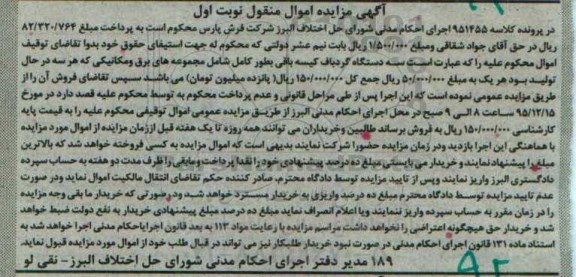 آگهی مزایده اموال منقول نوبت اول
در پرونده کلاسه ۹۵۱۴۵۵ اجرای احکام مدنی شورای حل اختلاف البرز شرکت فرش پارس محکوم است به پرداخت مبلغ ۸۲/۳۲۰/۷۶۴
ریال در حق آقای جواد شقاقی ومبلغ ۱/۵۰۰/۰۰۰ ریال بابت نیم عشر دولتی که محکوم له جهت استیفای حقوق خود بدوا تقاضای توقیف
اموال محکوم علیه را که عبارت است از سه دستگاه گردباف کیسه بافی بطور کامل شامل مجموعه های برق ومکانیکی که هر سه در حال
تولید بود هر یک به مبلغ ۵۰/۰۰۰/۰۰۰ ریال جمع کل ۱۵۰/۰۰۰/۰۰۰ ریال( پانزده میلیون تومان) می باشد سپس تقاضای فروش آن را از
طریق مزایده عمومی نموده است که این اجرا پس از طی مراحل قانونی و عدم پرداخت محکوم به توسط محکوم علیه قصد دارد در مورخ
۹۵/۱۲/۱۵ ساعت ۸ الی ۹ صبح در محل اجرای احکام مدنی البرز از طریق مزایده عمومی اموال توقیفی محکوم علیه را به قیمت پایه
کارشناسی ۱۵۰/۰۰۰/۰۰۰ ریال به فروش برساند طالبین وخریداران می توانند همه روزه تا یک هفته قبل اززمان مزایده از اموال مورد مزایده
با هماهنگی این اجرا بازدید ودر زمان مزایده حضورا شرکت نمایند بدیهی است که اموال مزایده به کسی فروخته خواهد شد که بالاترین
مبلغ را پیشنهاد نمایند و خریدار می بایستی مبلغ ده درصد پیشنهادی خود را نقدا پرداخت ومابقی را ظرف مدت دو هفته به حساب سپرده
دادگستری البرز واریز نمایند وپس از تایید مزایده توسط دادگاه محترم صادر کننده حکم تقاضای انتقال مالکیت اموال نماید ودر صورت
عدم تایید مزایده توسط دادگاه محترم مبلغ ده درصد واریزی به خریدار مسترد خواهد شد ودر صورتی که خریدار ما بقی وجه مزایده
را در زمان مقرر به حساب سپرده واریز ننمایند ویا اعلام انصراف نماید مبلغ ده درصد مبلغ پیشنهادی خریدار به نفع دولت ضبط خواهد
شد و خریدار حق هیچگونه اعتراضی را نخواهد داشت مراسم مزایده با رعایت مواد ۱۱۳ به بعد قانون اجرای احکام مدنی اجرا خواهد شد به
استناد ماده ۱۳۱ قانون اجرای احکام مدنی در صورت نبود خریدار طلبکار نیز می تواند در قبال طلب خود از اموال مورد مزایده قبول نماید.
۱۸۹ مدیر دفتر اجرای احکام مدنی شورای حل اختلاف البرز- نقی لو